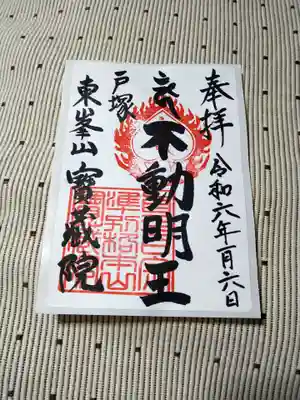 奉拝
令和六年一月六日
不動明王
戸塚
東峯山寶蔵院